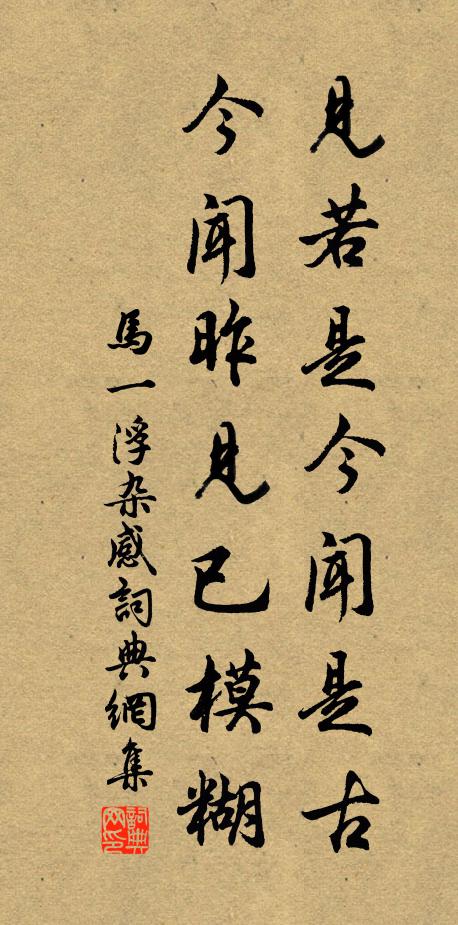 見若是今聞是古
今聞昨見已模糊
馬一浮杂感詞典網集
詞典网印